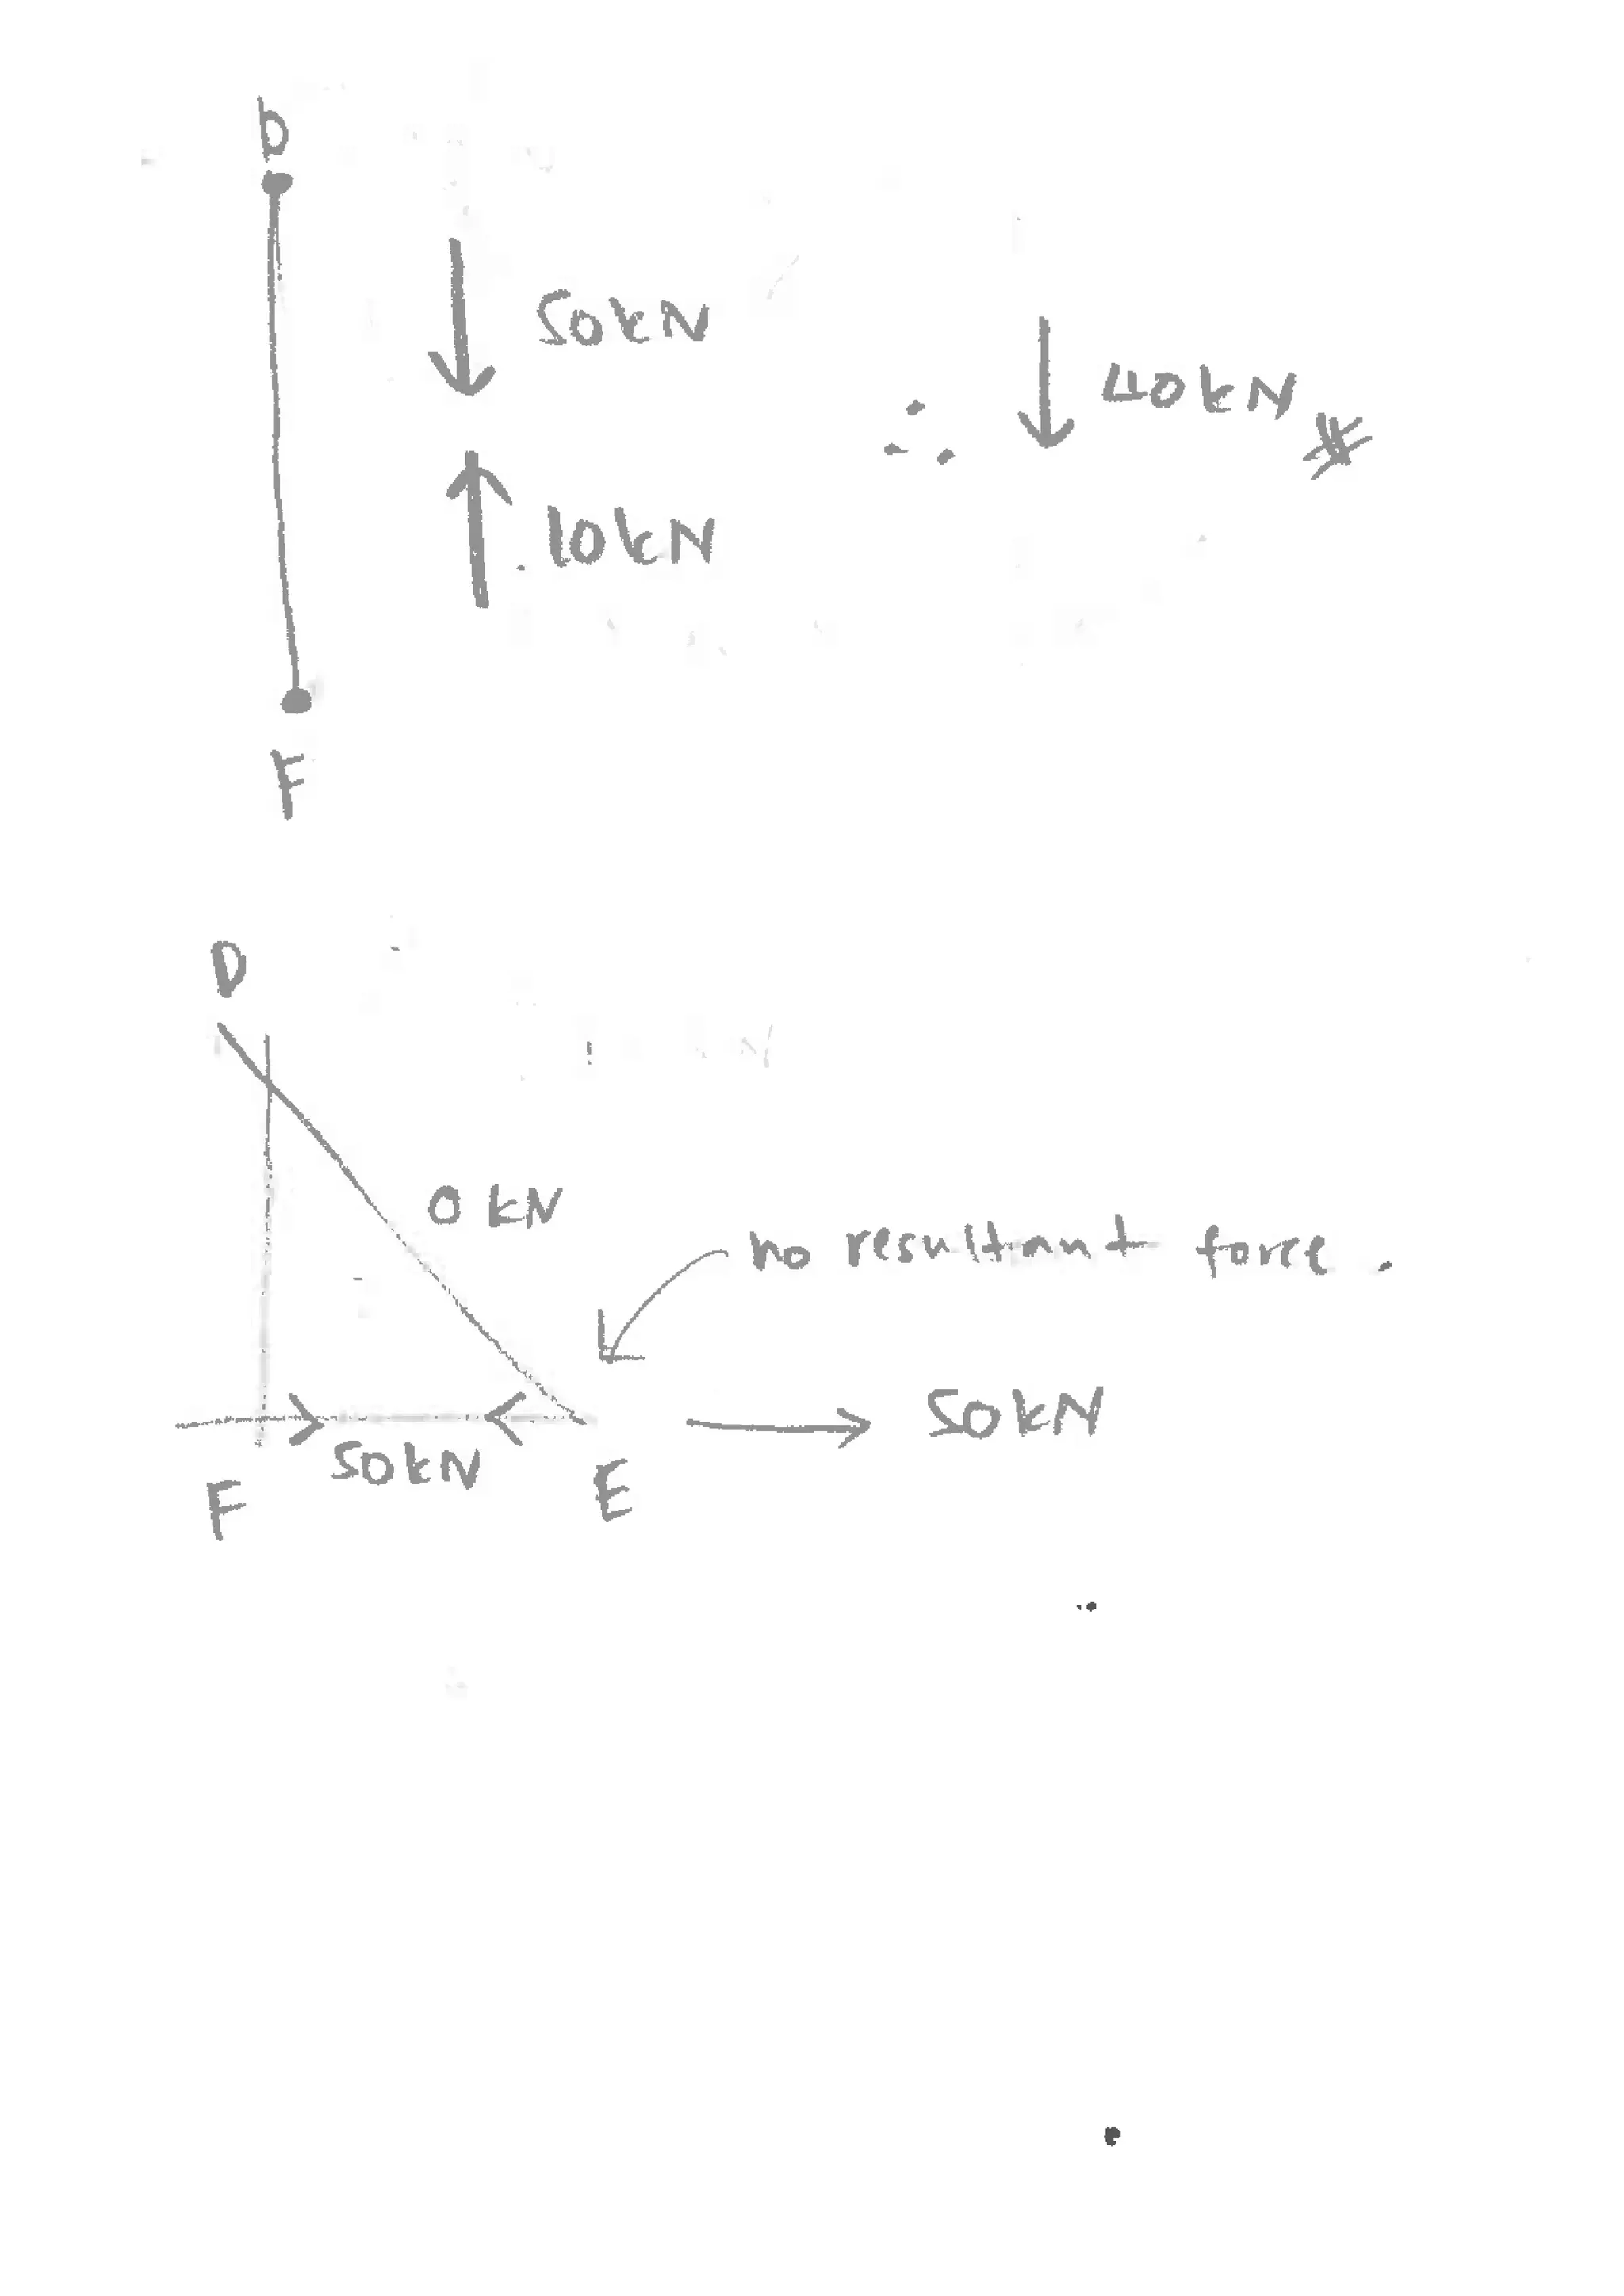 D
50kN
∴ 40kN
10kN
F
D
0 kN
no resultant force.
50kN
50kN
F
E